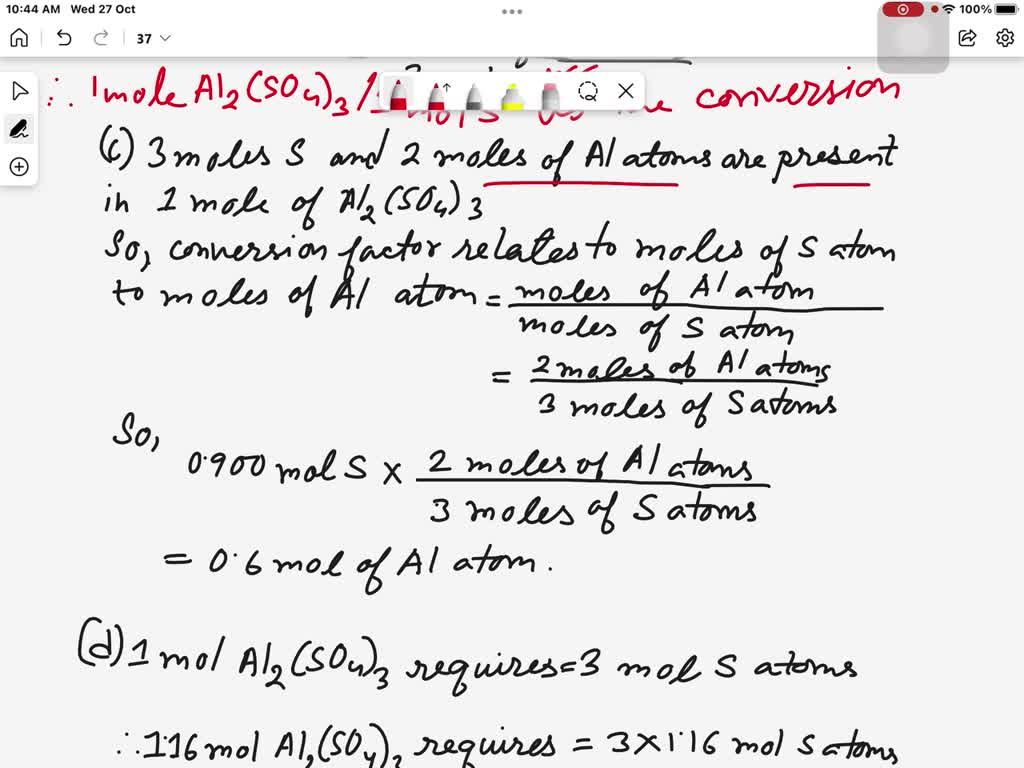 10:44 AM Wed 27 Oct
100%
37
∴ 1 mole Al₂(SO₄)₃/ conversion
(c) 3 moles S and 2 moles of Al atoms are present
in 1 mole of Al₂(SO₄)3
So, conversion factor relates to moles of S atom
to moles of Al atom = moles of Al atom
moles of S atom
= 2 moles of Al atoms
3 moles of S atoms
So,
0.900 mol S × 2 moles of Al atoms
3 moles of S atoms
= 0.6 mol of Al atom.
(d) 1 mol Al₂(SO₄)₃ requires = 3 mol S atoms
∴ 1.16 mol Al₂(SO₄)₃ requires = 3 × 1.16 mol S atoms